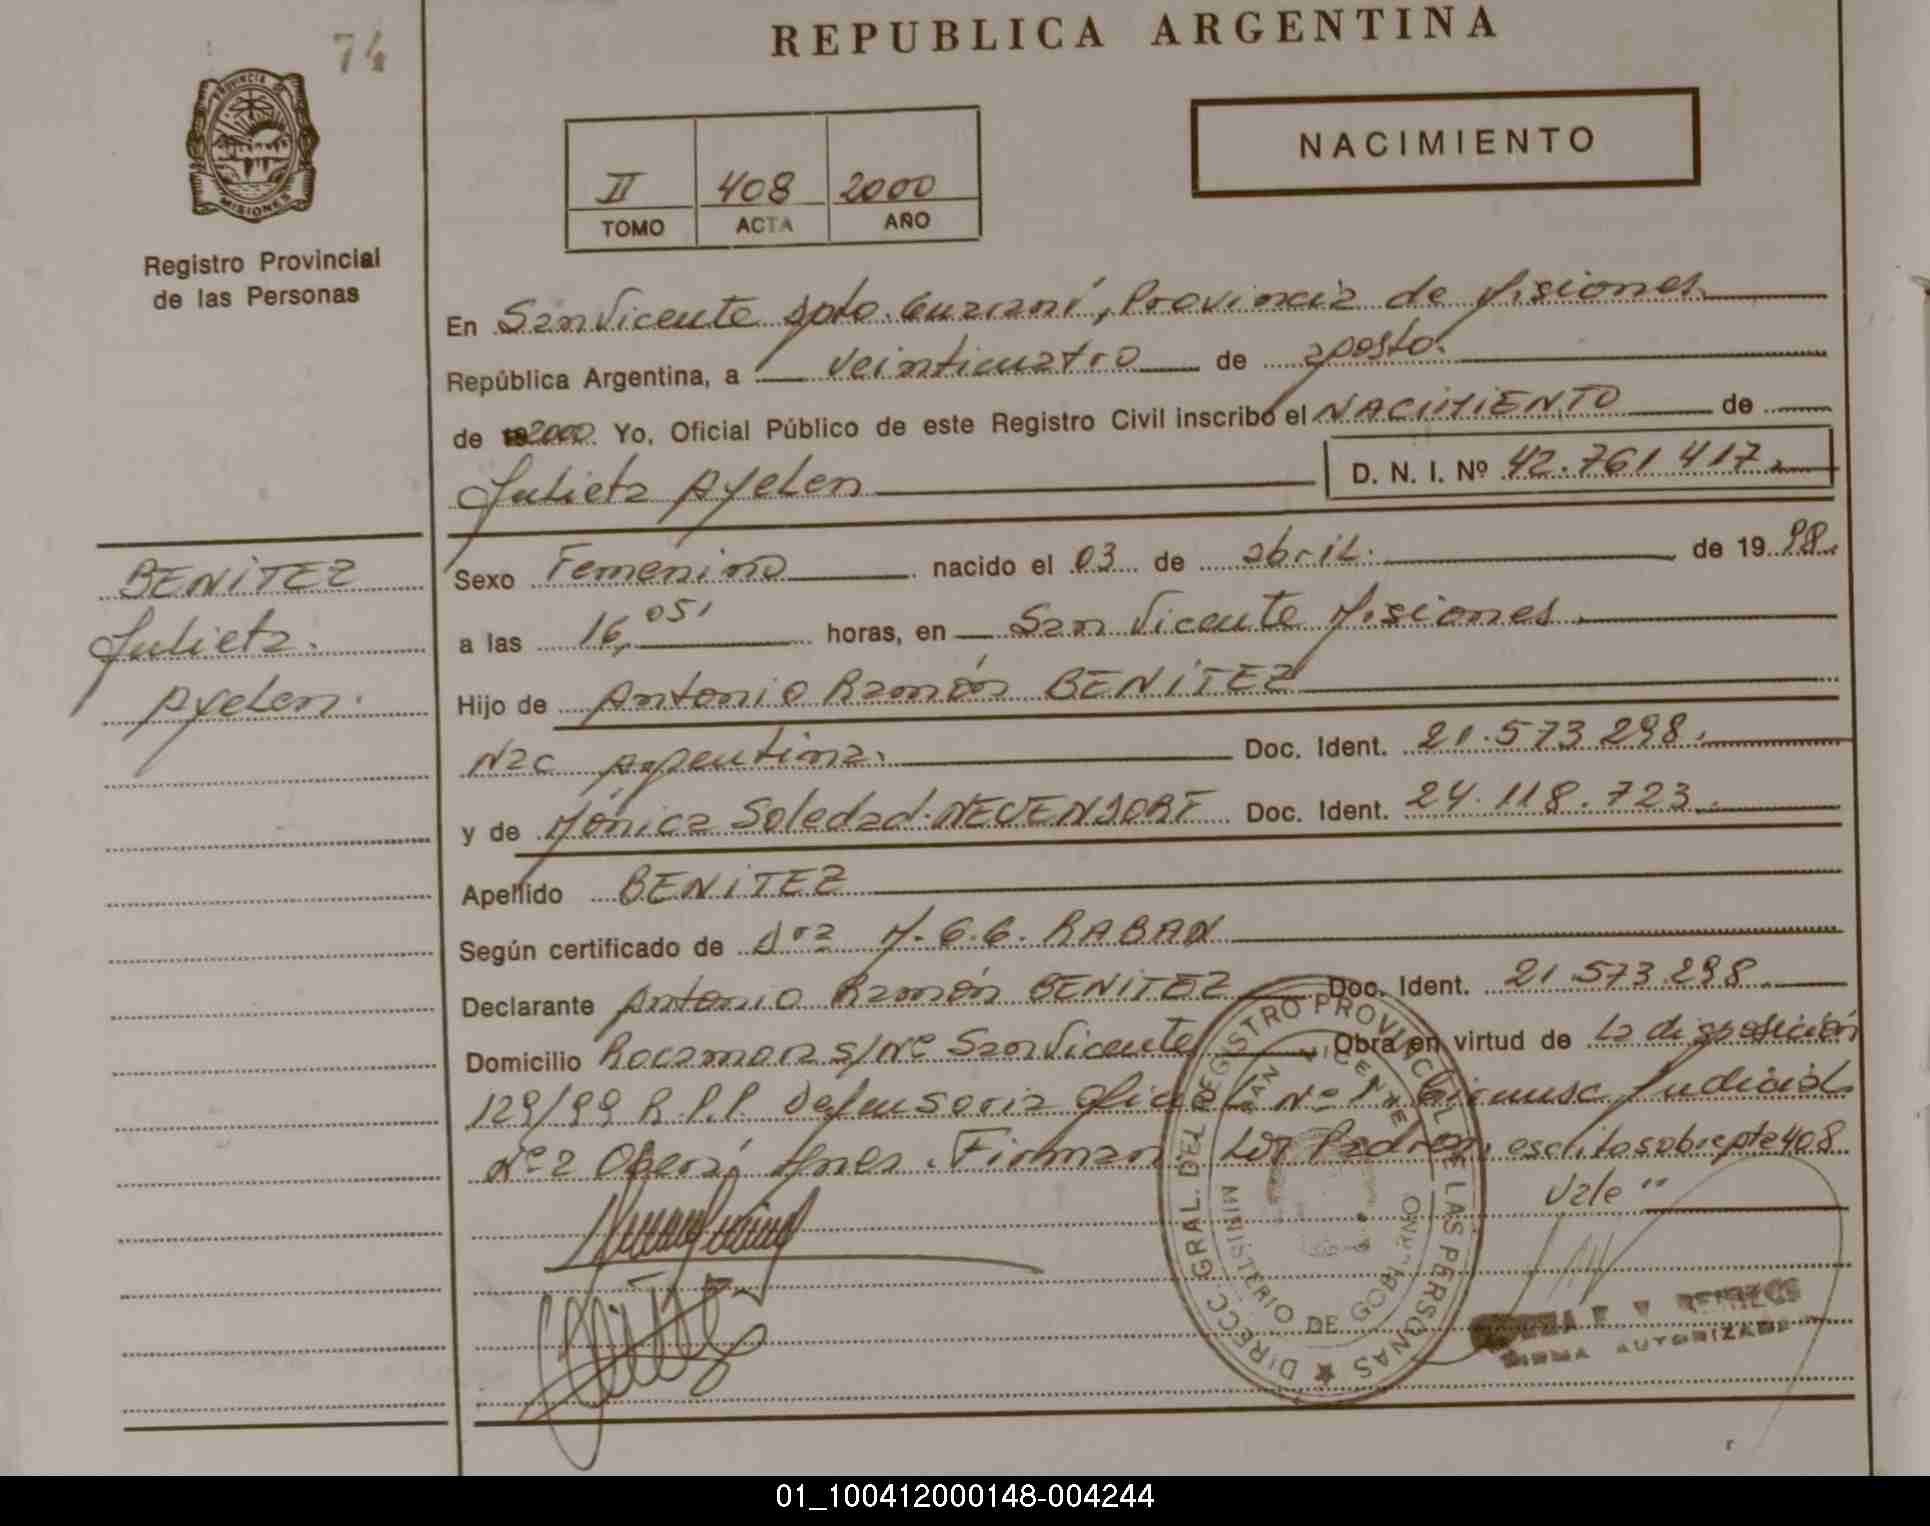 REPUBLICA ARGENTINA
74
NACIMIENTO
PROVINCIA DE
MISIONES
II 408 2000
TOMO ACTA AÑO
Registro Provincial
de las Personas
En San Vicente Dpto. Guaraní, Provincia de Misiones
República Argentina, a veinticuatro de agosto.
de 2000. Yo, Oficial Público de este Registro Civil inscribo el NACIMIENTO de
Julieta Ayelen D. N. I. Nº 42.761.417.
BENITEZ
Julieta.
Ayelen.
Sexo Femenino nacido el 03 de abril. de 19 98.
a las 16,05' horas, en San Vicente Misiones
Hijo de Antonio Ramón BENíTEZ
Nac Argentina. Doc. Ident. 21.573.298.
y de Mónica Soledad Doc. Ident. 24.118.723.
Apellido BENíTEZ
Según certificado de Dra M.G.G. RABAN
Declarante Antonio Ramón BENíTEZ Doc. Ident. 21.573.298.
Domicilio s/Nº San Vicente Obra en virtud de La disposición
129/99 R.P.P. Defensoria Oficial Nº 1 Circunsc Judicial
Nº 2 Oberá Mnes. Firman Los Padres. escrito sobre pte 408
Vale"
DIRECC. GRAL. DEL REGISTRO PROVINCIAL DE LAS PERSONAS
SAN VICENTE
MINISTERIO DE GOBIERNO
FIRMA AUTORIZADA
01_100412000148-004244